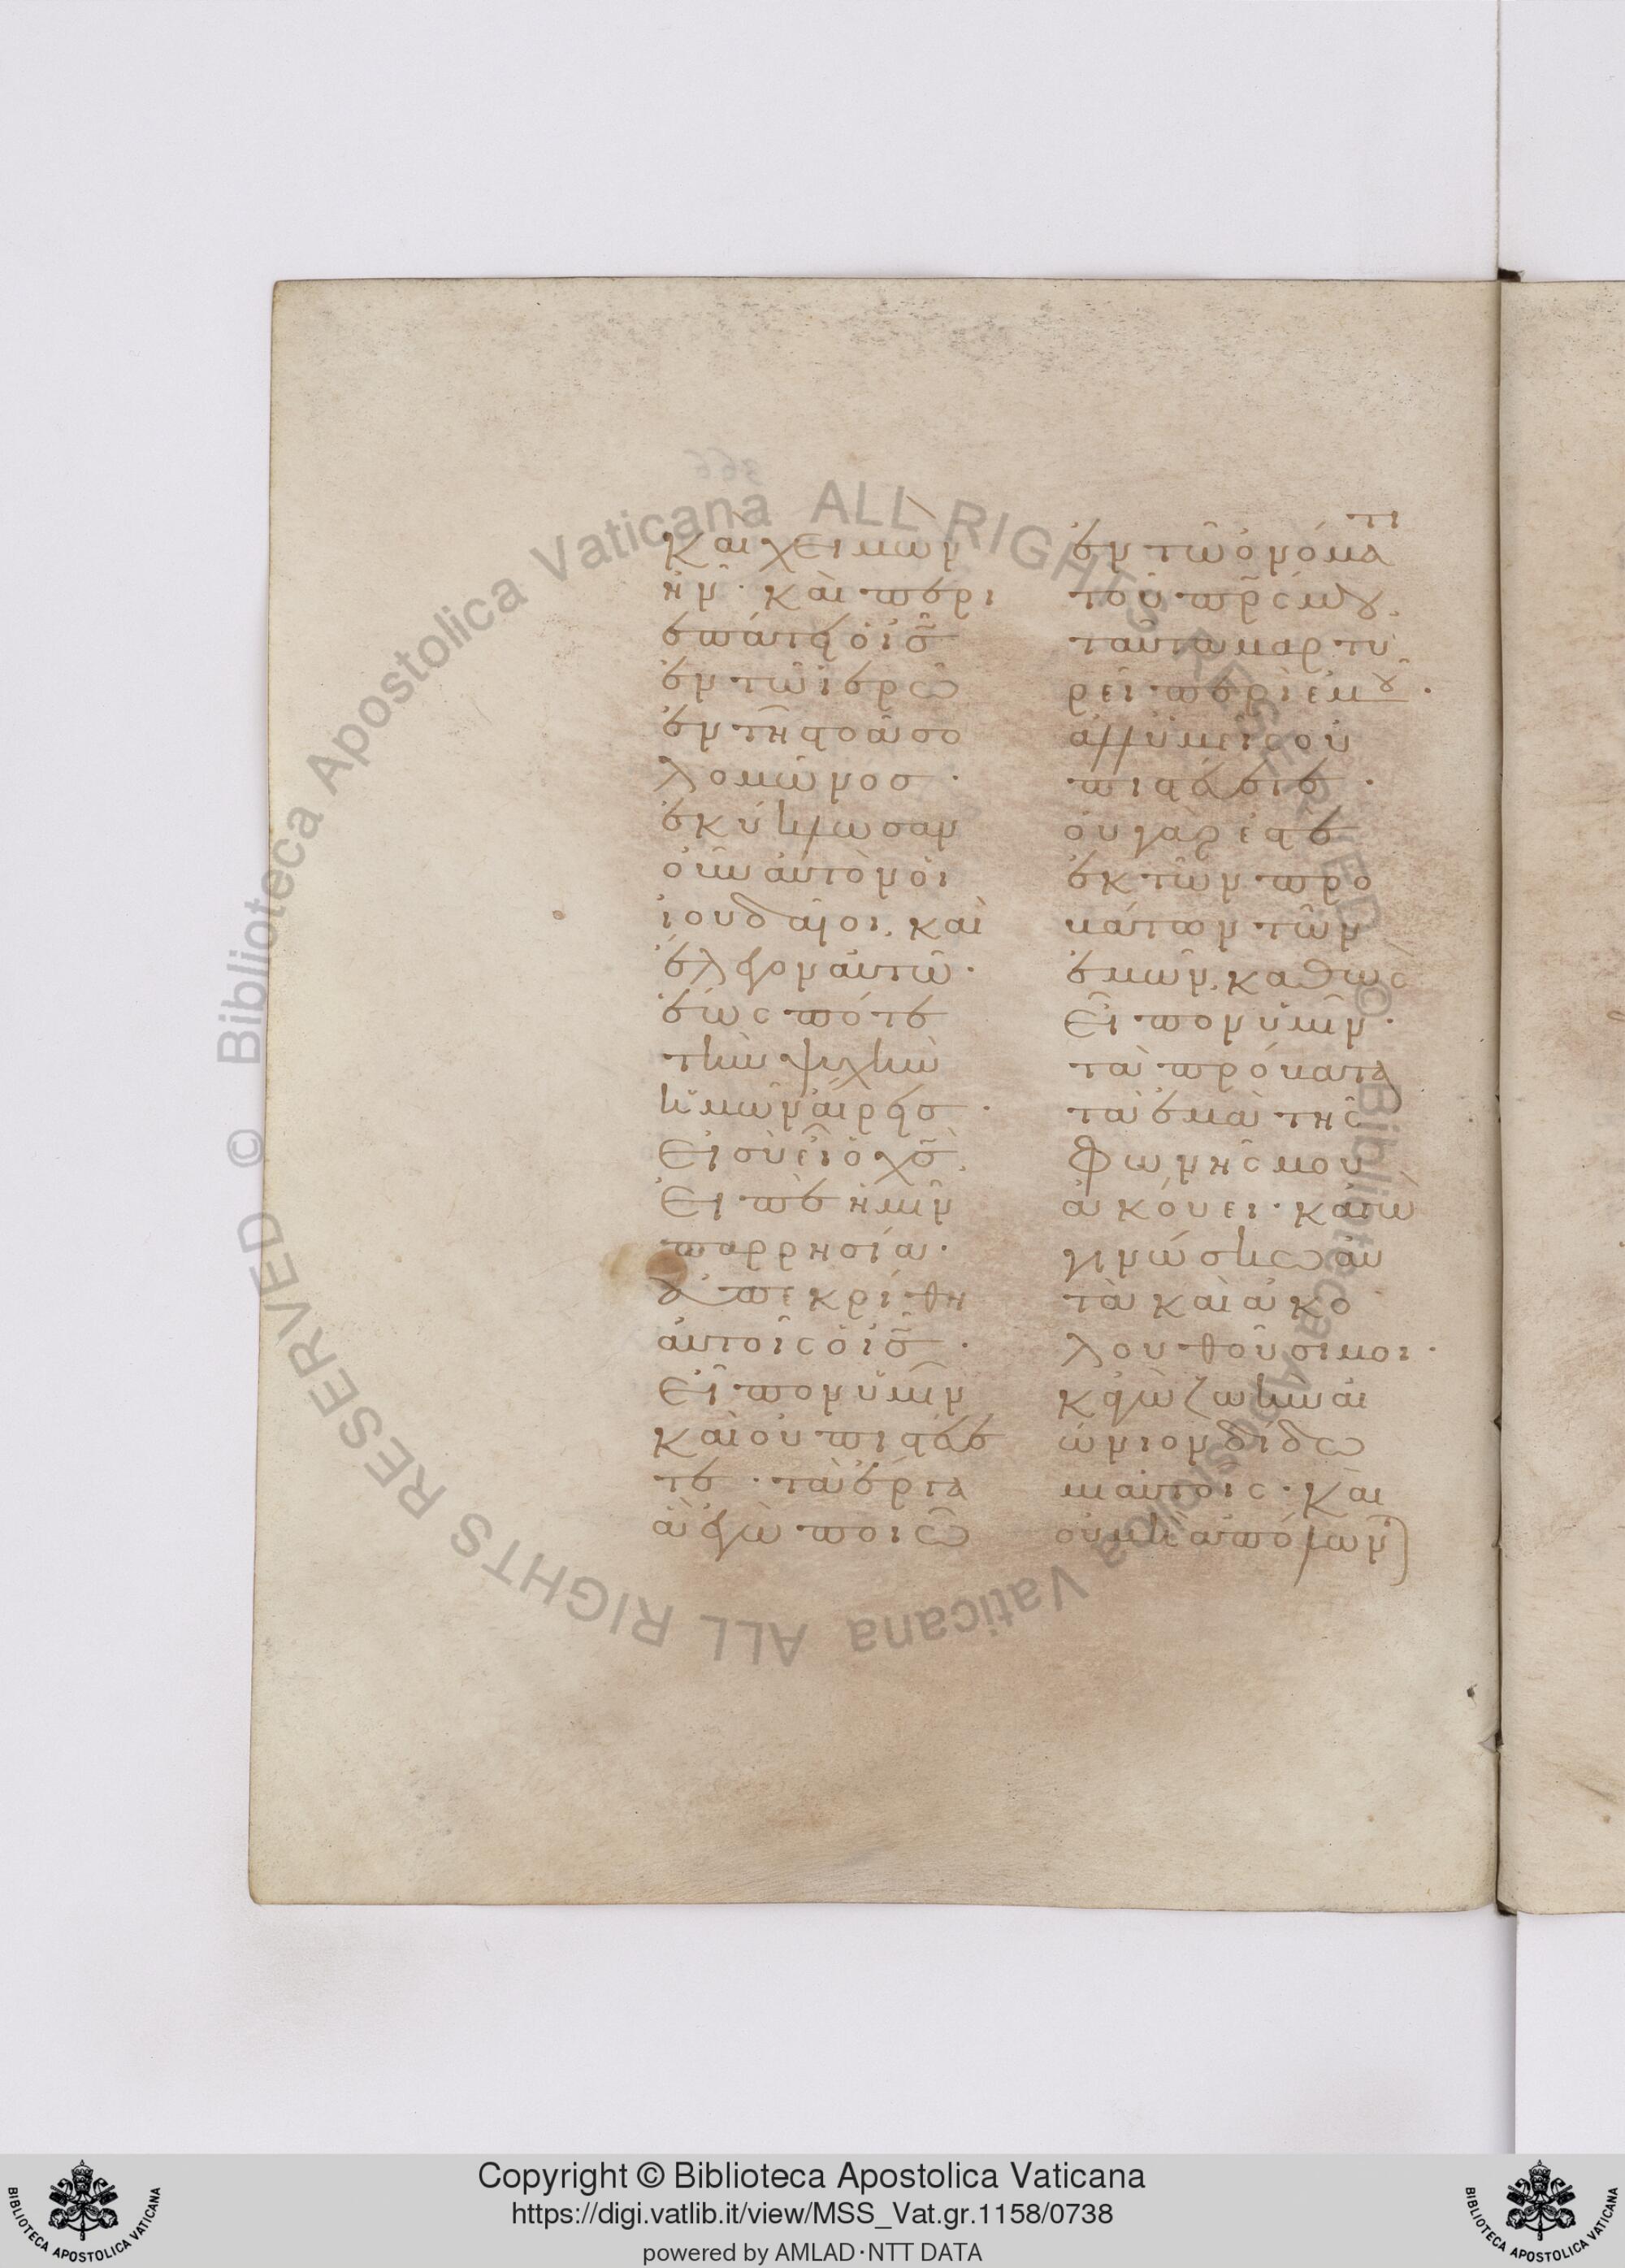 Καὶ χειμὼν
ἦν · καὶ περι
επάτει ὁ ἰς̅
ἐν τῶ ἱερῶ
ἐν τῆ στοᾶ σο
λομῶνος ·
ἐκύκλωσαν
οὖν αὐτὸν οἱ
ἰουδαῖοι, καὶ
ἔλεγον αὐτῶ ·
ἕως πότε
τὴν ψυχὴν
ἡμῶν αἴρεις ·
εἰ σὺ εἶ ὁ χς̅,
εἰπὲ ἡμῖν
παρρησία ·
Ἀπεκρίθη
αὐτοῖς ὁ ἰς̅ ·
εἶπον ὑμῖν
καὶ οὐ πιστεύε
τε · τὰ ἔργα
ἃ ἐγὼ ποιῶ
ἐν τῶ ὀνόμα
τι
τοῦ πρ̅ς μου,
ταῦτα μαρτυ
ρεῖ περὶ ἐμοῦ ·
ἀλλ' ὑμεῖς οὐ
πιστεύετε ·
οὐ γάρ ἐστε
ἐκ τῶν προ
βάτων τῶν
ἐμῶν, καθὼς
εἶπον ὑμῖν ·
τὰ πρόβατα
τὰ ἐμὰ τῆς
φωνῆς μου
ἀκούει · κἀγὼ
γινώσκω αὐ
τὰ καὶ ἀκο
λουθοῦσί μοι ·
κἀγὼ ζωὴν αἰ
ώνιον δίδω
μι αὐτοῖς · καὶ
οὐ μὴ ἀπόλων
© Biblioteca Apostolica Vaticana ALL RIGHTS RESERVED © Biblioteca Apostolica Vaticana ALL RIGHTS RESERVED
Copyright © Biblioteca Apostolica Vaticana
https://digi.vatlib.it/view/MSS_Vat.gr.1158/0738
powered by AMLAD·NTT DATA
BIBLIOTECA APOSTOLICA VATICANA
BIBLIOTECA APOSTOLICA VATICANA